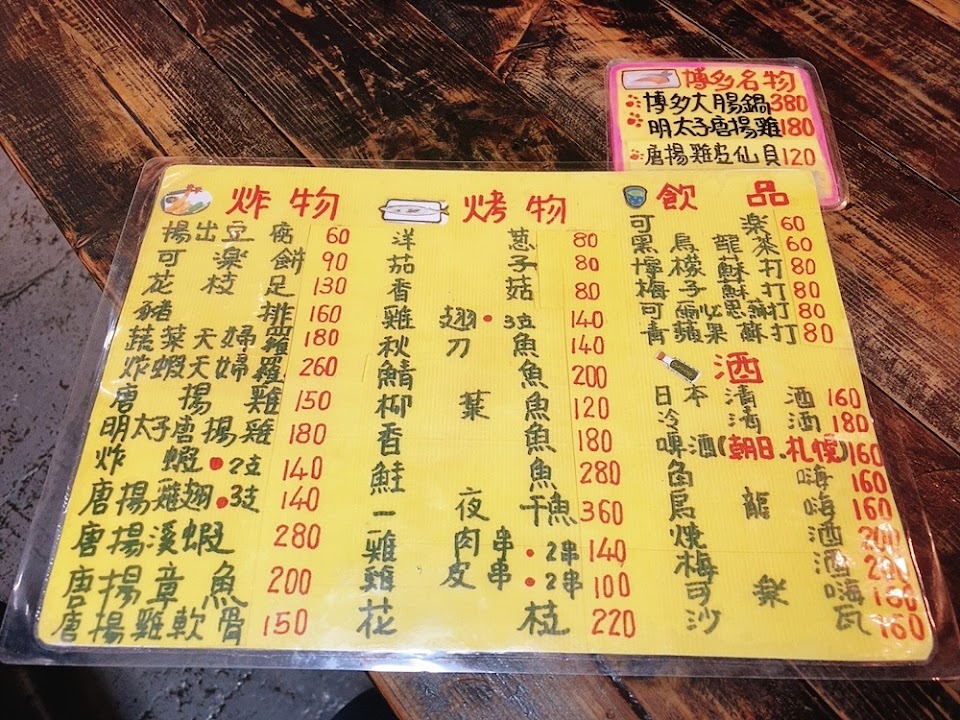 博多名物
博多大腸鍋380
明太子唐揚雞180
唐揚雞皮仙貝120
炸物
揚出豆腐 60
可楽餅 90
花枝足 130
豬排 160
蔬菜天婦羅 180
炸蝦天婦羅 260
唐揚雞 150
明太子唐揚雞 180
炸蝦•2支 140
唐揚雞翅•3支 140
唐揚溪蝦 280
唐揚章魚 200
唐揚雞軟骨 150
烤物
洋蔥 80
茄子 80
香菇 80
雞翅•3支 140
秋刀魚 140
鯖魚 200
柳葉魚 120
香魚 180
鮭魚 280
一夜干魚 360
雞肉串•2串 140
雞皮串•2串 100
花枝 220
飲品
可楽 60
黑烏龍茶 60
檸檬蘇打 80
梅子蘇打 80
可爾必思蘇打 80
青蘋果蘇打 80
酒
日本清酒 160
冷清酒 180
啤酒(朝日.札幌)160
角嗨 160
烏龍嗨 160
燒酒 200
梅酒 200
可楽嗨 160
沙瓦 160